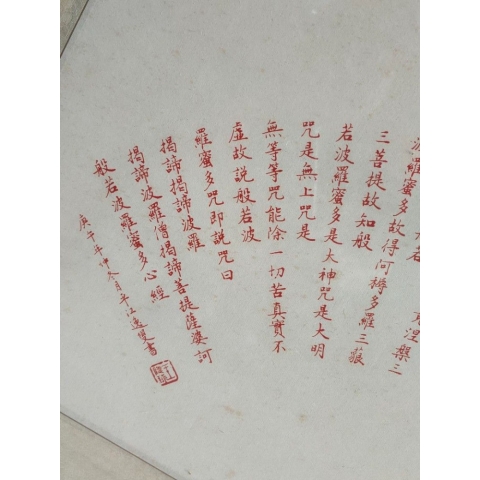 竟涅槃三
波羅蜜多故得阿耨多羅三藐
三菩提故知般
若波羅蜜多是大神咒是大明
咒是無上咒是
無等等咒能除一切苦真實不
虛故説般若波
羅蜜多咒即説咒曰
揭諦揭諦波羅
揭諦波羅僧揭諦菩提薩婆訶
般若波羅蜜多心經
庚午年仲冬月平江逸叟書